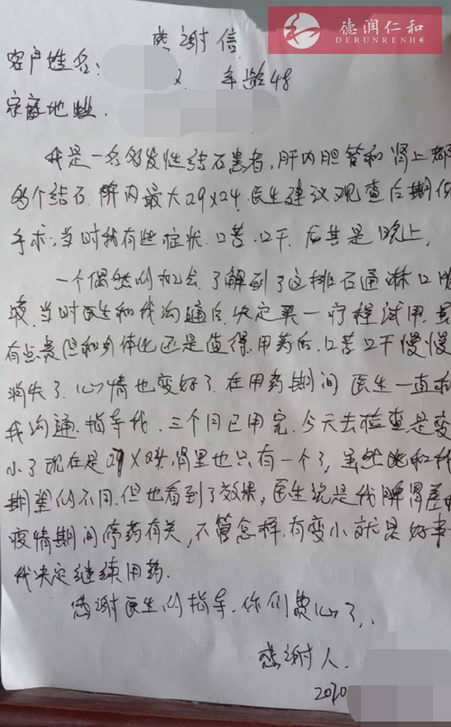 德润仁和
DERUNRENHE
感谢信
客户姓名: 年龄48
家庭地址.
我是一名多发性结石患者,肝内胆管和肾上都
多个结石.肝内最大29×24.医生建议观查后期做
手术,当时我有些症状.口苦.口干.尤其是晚上.
一个偶然的机会.了解到了这排石通淋口服
液.当时医生和我沟通后.决定买一疗程试用.虽
有点贵但和身体比还是值得.用药后.口苦口干慢慢
消失了.心情也变好了.在用药期间医生一直和
我沟通.指导我.三个月已用完.今天去检查是变
小了现在是 肾里也只有一个了,虽然和我
期望的不同.但也看到了效果,医生说是我脾胃差和
疫情期间停药有关,不管怎样.有变小就是好事
我决定继续用药.
感谢医生的指导.你们费心了..
感谢人.
2020